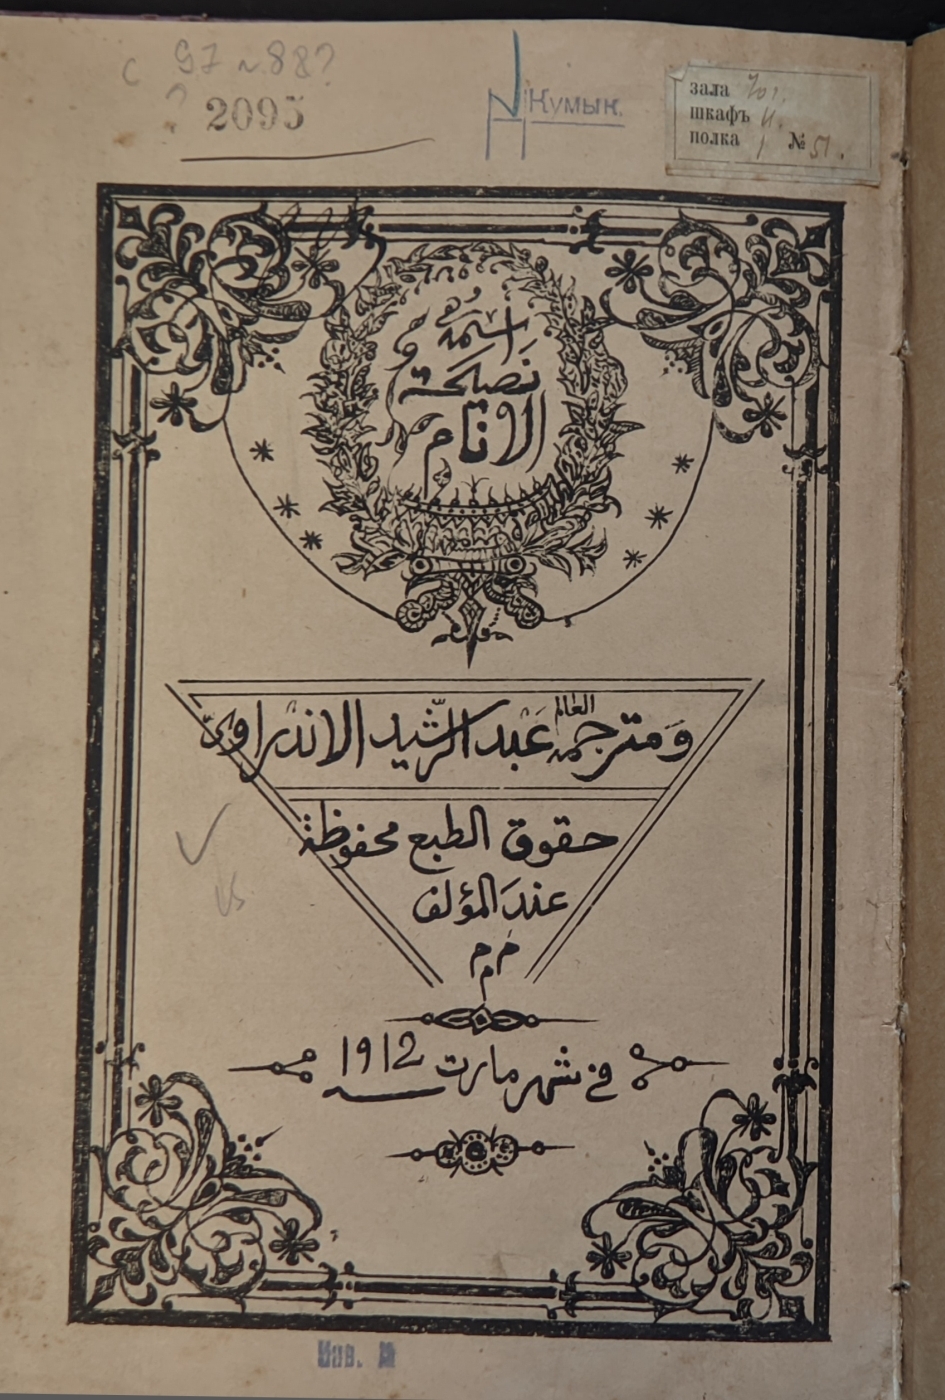 2095
Кумык.
зала
шкафъ
полка № 51.
اسمه
نصيحة
الانام
ومترجمه العالم عبد الرشيد الاندراوى
حقوق الطبع محفوظة
عند المؤلف
م م م
فى شهر مارت 1912 سنه
Инв. №